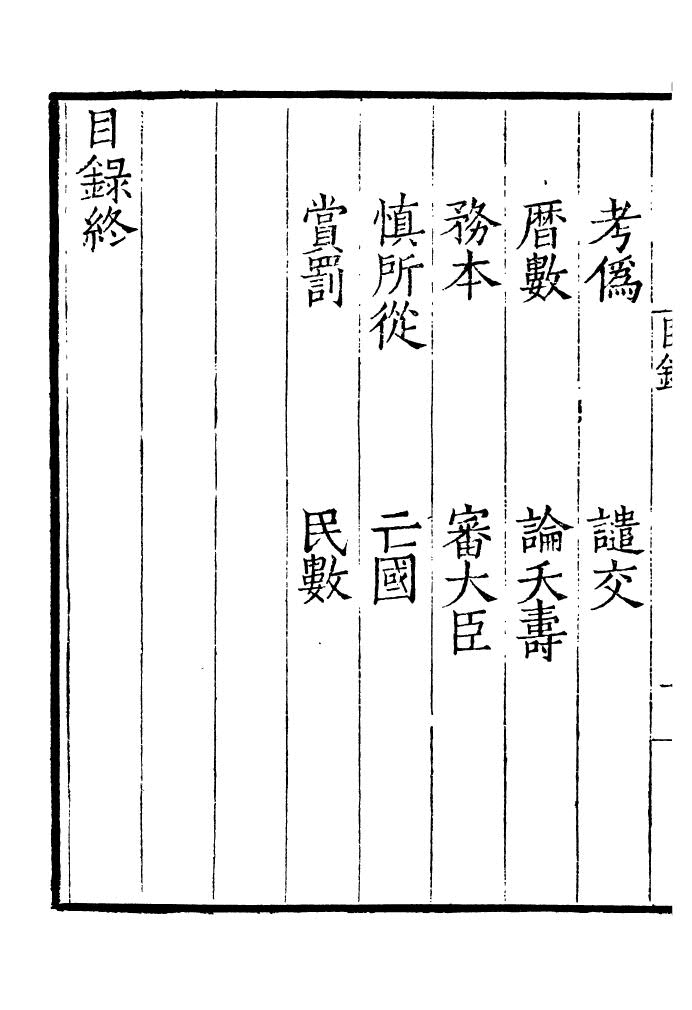 目録
一
考偽　譴交
暦數　論夭壽
務本　審大臣
慎所從　亡國
賞罰　民數
目録終